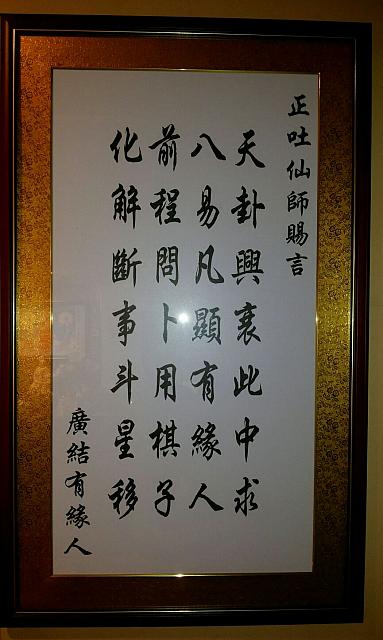 正吐仙師賜言
天卦興衰此中求
八易凡顯有緣人
前程問卜用棋子
化解斷事斗星移
廣結有緣人